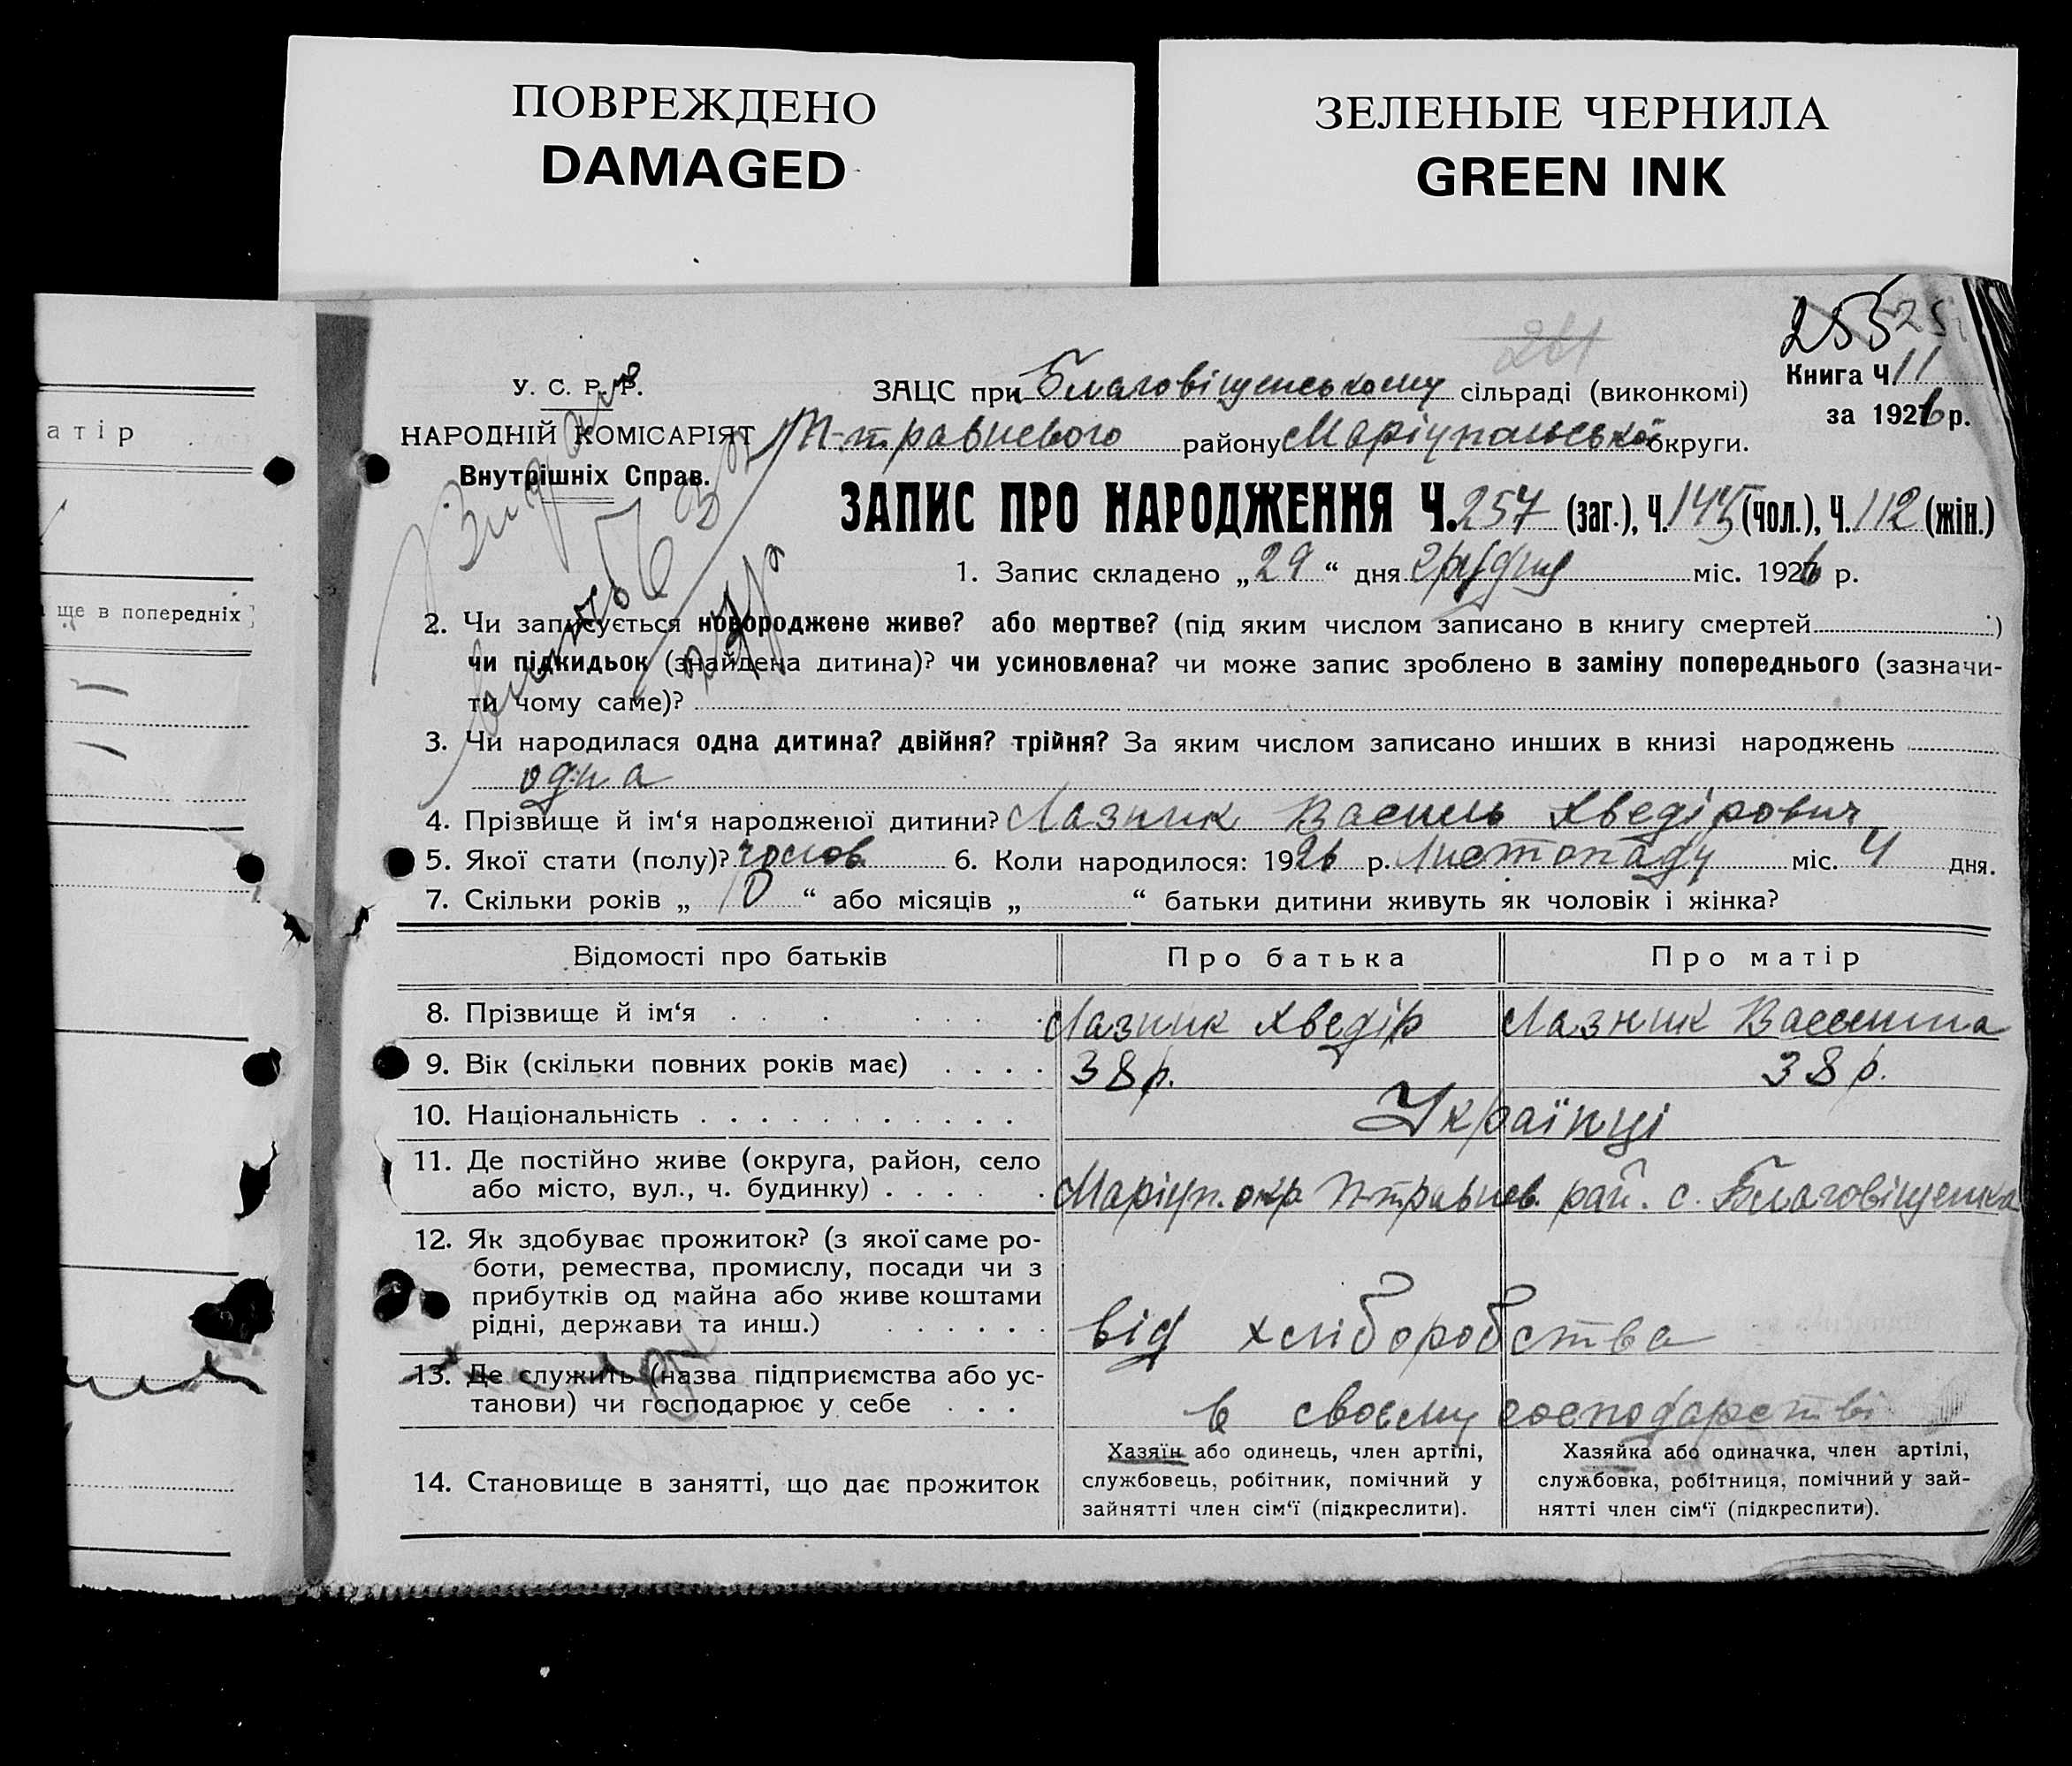 ПОВРЕЖДЕНО
DAMAGED
ЗЕЛЕНЫЕ ЧЕРНИЛА
GREEN INK
255
Книга Ч 11
за 1926 р.
У. С. Р. Р.
НАРОДНІЙ КОМІСАРІЯТ
Внутрішніх Справ.
ЗАЦС при Благовіщенському сільраді (виконкомі)
П-травневого району Маріупольської округи.
ЗАПИС ПРО НАРОДЖЕННЯ Ч. 257 (заг.), Ч. 145 (чол.), Ч. 112 (жін.)
1. Запис складено „29“ дня грудня міс. 1926 р.
2. Чи записується новороджене живе? або мертве? (під яким числом записано в книгу смертей )
чи підкидьок (знайдена дитина)? чи усиновлена? чи може запис зроблено в заміну попереднього (зазначи-
ти чому саме)?
3. Чи народилася одна дитина? двійня? трійня? За яким числом записано инших в книзі народжень
одна
4. Прізвище й ім‘я народженої дитини? Лазник Василь Хведірович
5. Якої стати (полу)? чолов 6. Коли народилося: 1926 р. Листопаду міс. 4 дня.
7. Скільки років „ 10 “ або місяців „ “ батьки дитини живуть як чоловік і жінка?
Відомості про батьків Про батька Про матір
8. Прізвище й ім‘я Лазник Хведір Лазник
9. Вік (скільки повних років має) 38 р. 38 р.
10. Національність Українці
11. Де постійно живе (округа, район, село
або місто, вул., ч. будинку) Маріуп. окр П-травнев. рай. с. Благовіщенка
12. Як здобуває прожиток? (з якої саме ро-
боти, ремества, промислу, посади чи з
прибутків од майна або живе коштами
рідні, держави та инш.) від хліборобства
13. Де служить (назва підприємства або ус-
танови) чи господарює у себе в своєму господарстві
14. Становище в занятті, що дає прожиток
Хазяїн або одинець, член артілі,
службовець, робітник, помічний у
зайнятті член сім‘ї (підкреслити).
Хазяйка або одиначка, член артілі,
службовка, робітниця, помічний у зай-
нятті член сім‘ї (підкреслити).
атір
ще в попередніх